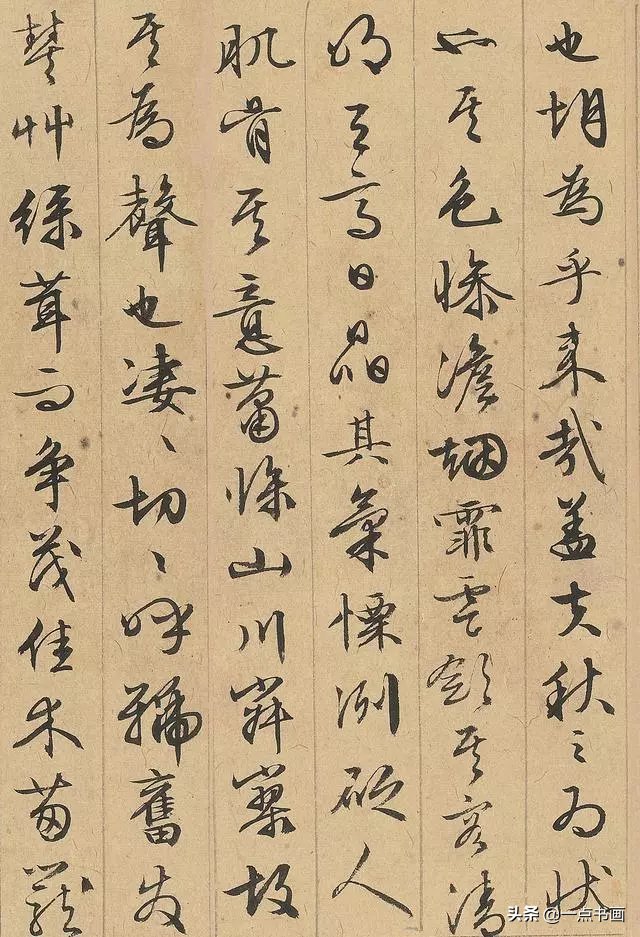 也胡為乎来哉盖夫秋之為状
也其色惨澹烟霏雲斂其容清
明天高日晶其氣慄冽砭人
肌骨其意蕭條山川寂寥故
其為聲也凄〻切〻呼號奮发
豐草綠茸而争茂佳木葱蘢
头条 @一点书画